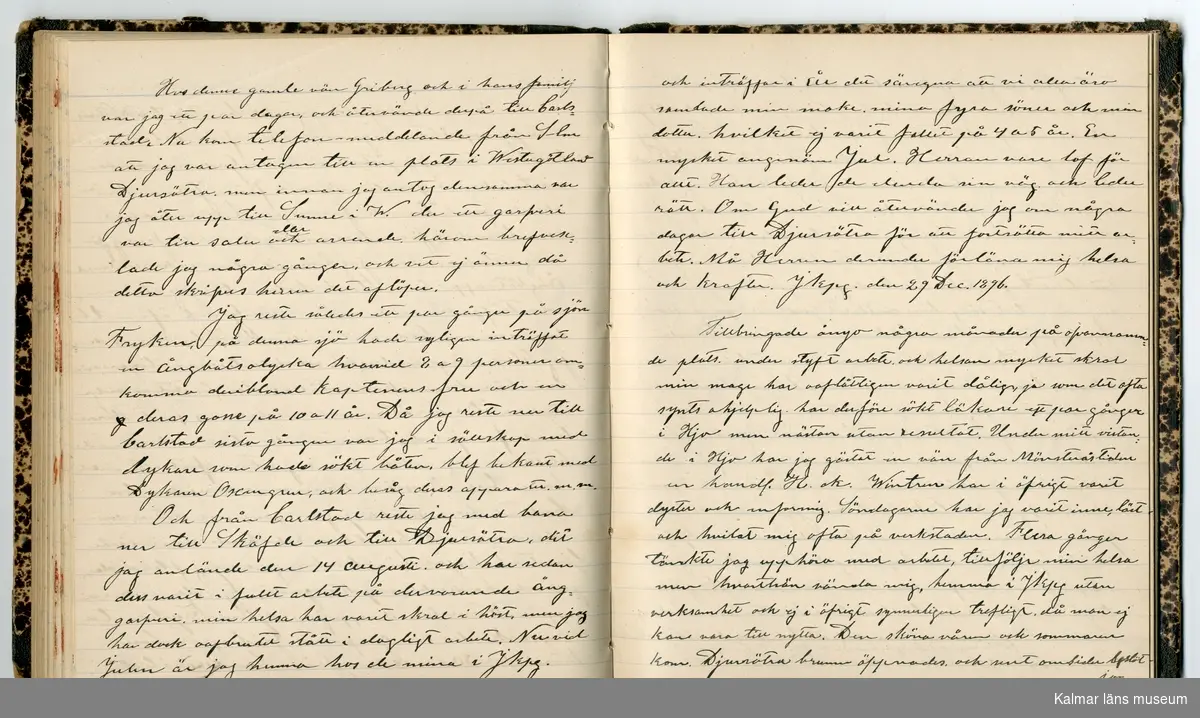 Hos denne gamle vän Friberg och i hans familj
var jag ett par dagar, och återvände derpå till Carl-
stad. Nu kom telefon-meddelande från S-lm
att jag var antagen till en plats i Westergötland
Djursätra, men innan jag antog densamma var
jag åter upp till Sunne i W. der ett garfveri
var till salu eller arrende, härom brefvex-
lade jag några gånger, och vet ej ännu då
detta skrifves huru det aflöper.
Jag reste således ett par gånger på sjön
Fryken, på denna sjö hade nyligen inträffat
en ångbåtsolycka hvarvid 8 a 9 personer om-
kommo deribland Kaptenens fru och en
deras gosse på 10 a 11 år. Då jag reste ner till
Carlstad sista gången var jag i sällskap med
dykare som hade sökt båten, blef bekant med
Dykaren Oxengren, och besåg deras apparater m.m.
Och från Carlstad reste jag med bana
ner till Sköfde och till Djursätra, dit
jag anlände den 14 augusti. och har sedan
dess varit i fullt arbete på dervarande ång-
garfveri, min helsa har varit skral i höst, men jag
har dock oafbrutet stått i dagligt arbete. Nu vid
Julen är jag hemma hos de mina i Jkpg.
och inträffar i år det säregna att vi alla äro
samlade min maka, mina fyra söner och min
dotter, hvilket ej varit fallet på 4 a 5 år. En
mycket angenäm Jul. Herran vare lof för
allt. Han leder de elenda sin väg och leder
rätt. Om Gud vill återvänder jag om några
dagar till Djursätra för att fortsätta mitt ar-
bete. Må Herren derunder förläna mig helsa
och krafter. Jkpg. den 29 Dec. 1896.
Tillbringade ånyo några månader på ofvannämn-
de plats. under styft arbete och helsan mycket skral
min mage har oaflåtligen varit dålig, ja som det ofta
synts ohjelplig. har derföre sökt läkare ett par gånger
i Hjo men nästan utan resultat. Under mitt vistan-
de i Hjo har jag gästat en vän från Mönsteråstiden
en handl. H. ok. Wintren har i öfrigt varit
dyster och enformig. Söndagarne har jag varit inne, läst
och hvilat mig ofta på verkstaden. Flera gånger
tänkte jag upphöra med arbetet, till följe min helsa
men hvarthän vända mig, hemma i Jkpg utan
verksamhet och ej i öfrigt synnerligen trefligt, då man ej
kan vara till nytta. Den sköna våren och sommaren
kom. Djursätra brunn öppnades, och sent omsider beslöt
jag
Kalmar läns museum